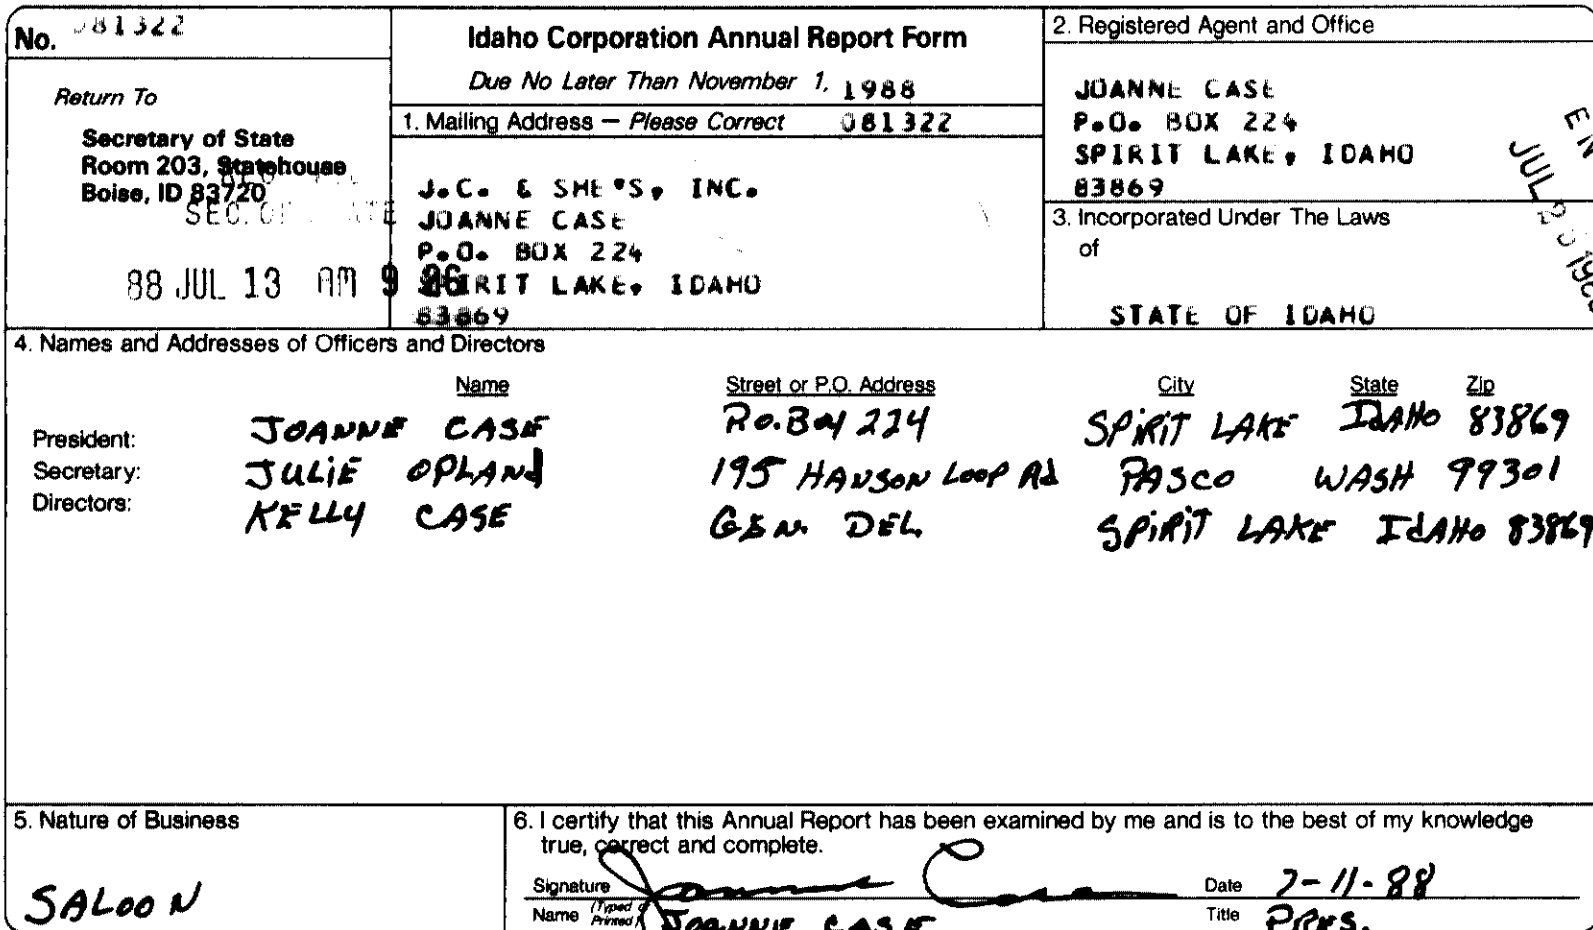 No. 081322
Idaho Corporation Annual Report Form
Due No Later Than November 1, 1988
Return To
Secretary of State
Room 203, Statehouse
Boise, ID 83720
SEC. OF STATE
88 JUL 13 AM 9 26
1. Mailing Address — Please Correct 081322
J.C. & SHE'S, INC.
JOANNE CASE
P.O. BOX 224
SPIRIT LAKE, IDAHO
83869
2. Registered Agent and Office
JOANNE CASE
P.O. BOX 224
SPIRIT LAKE, IDAHO
83869
3. Incorporated Under The Laws
of
STATE OF IDAHO
JUL
4. Names and Addresses of Officers and Directors
Name Street or P.O. Address City State Zip
President: JOANNE CASE P.O. Box 224 SPIRIT LAKE IDAHO 83869
Secretary: JULIE OPLAND 195 HANSON LOOP Rd PASCO WASH 99301
Directors: KELLY CASE GEN. DEL. SPIRIT LAKE IDAHO 83869
5. Nature of Business
SALOON
6. I certify that this Annual Report has been examined by me and is to the best of my knowledge
true, correct and complete.
Signature Joanne Case Date 7-11-88
Name (Typed or Printed) JOANNE CASE Title PRES.